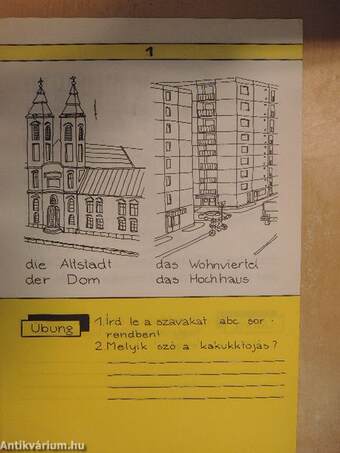 1
die Altstadt
das Wohnviertel
der Dom
das Hochhaus
Übung
1. Írd le a szavakat abc sor-
rendben!
2. Melyik szó a kakukktojás?
Antikvárium.hu